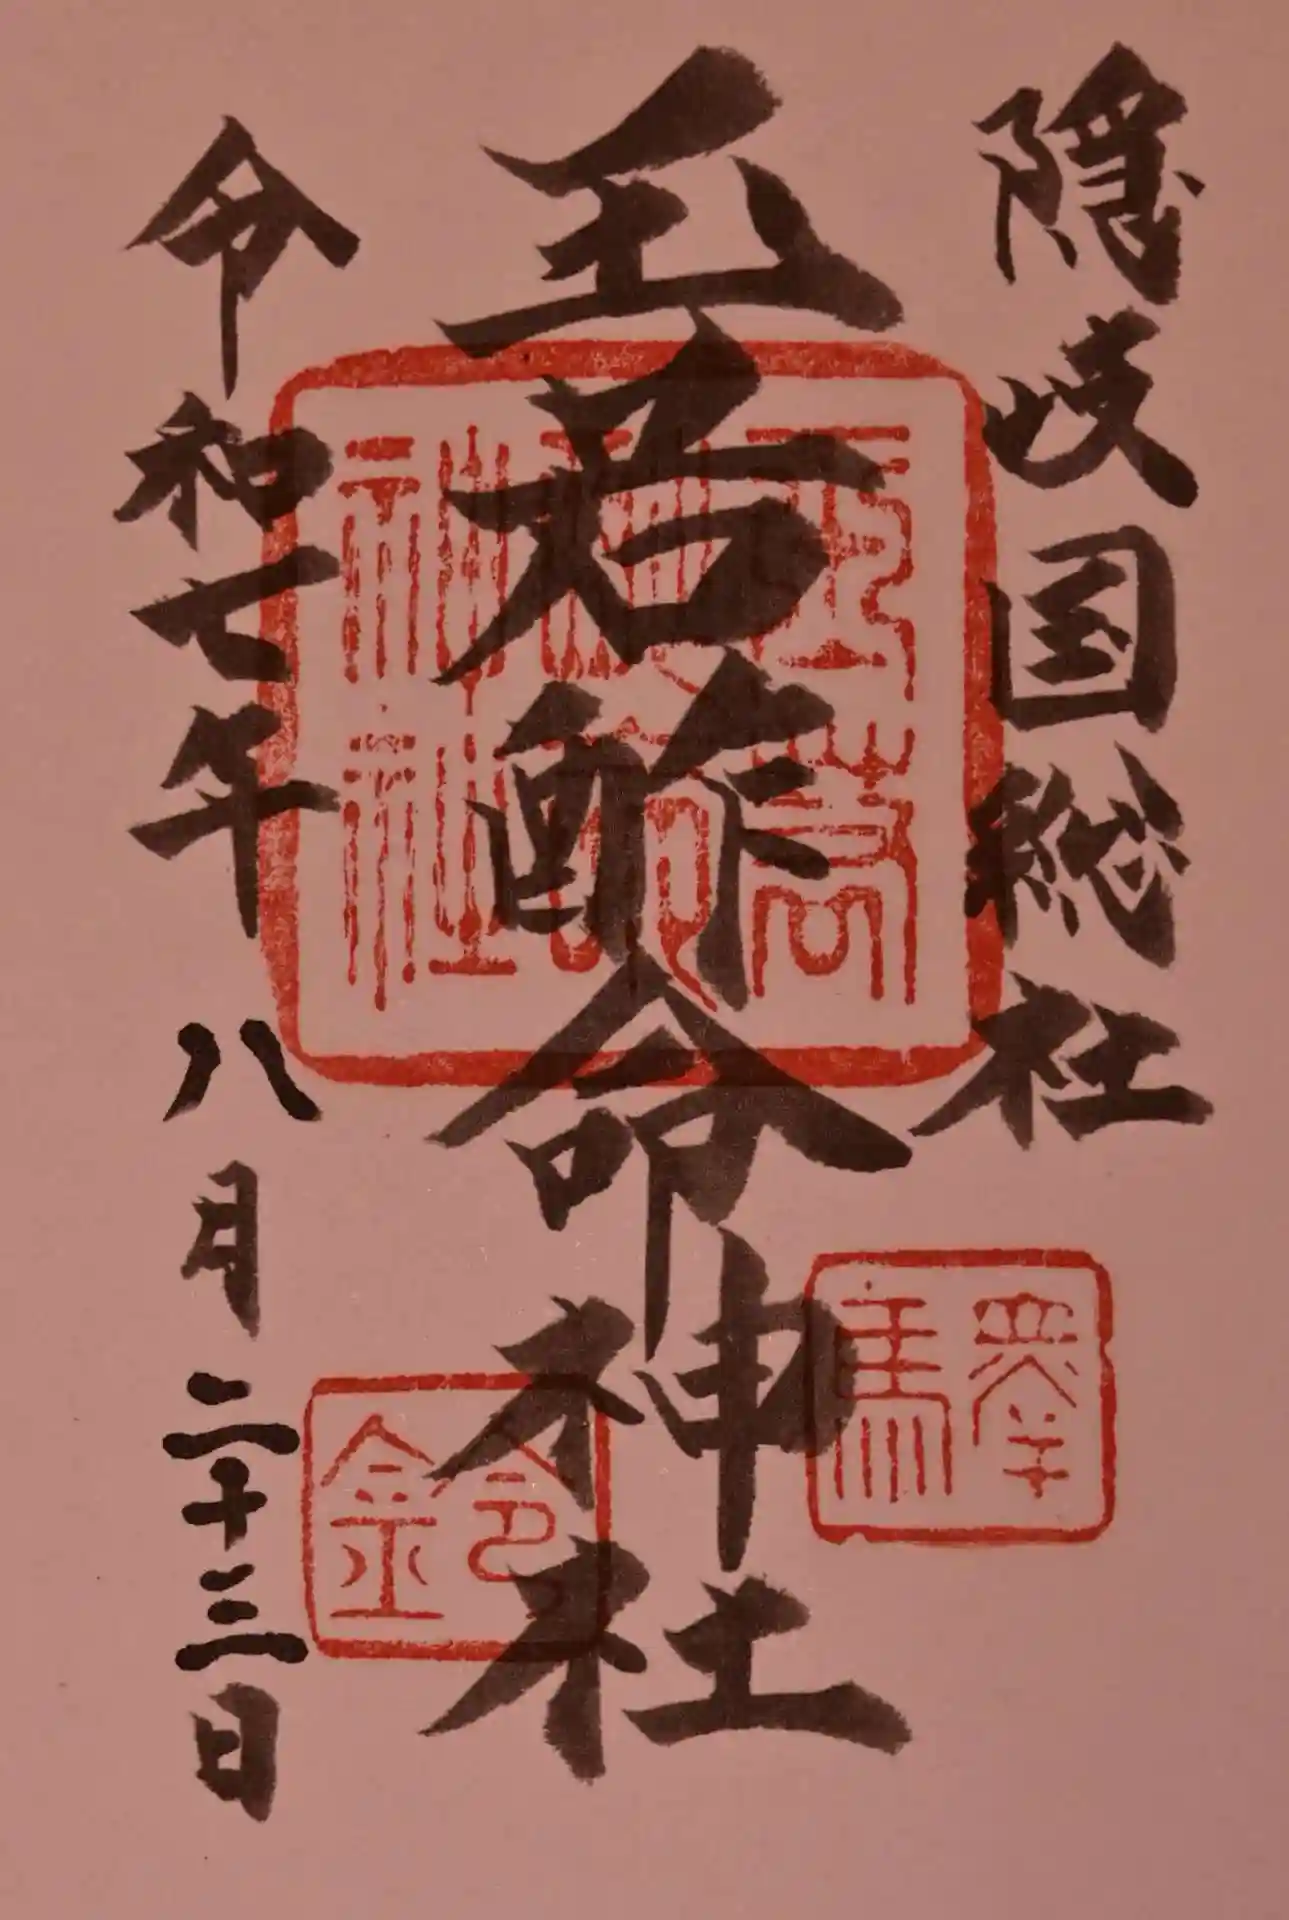 隠岐国総社
玉若酢命神社
令和七年八月二十三日
玉若
酢命
神社
驛
鈴